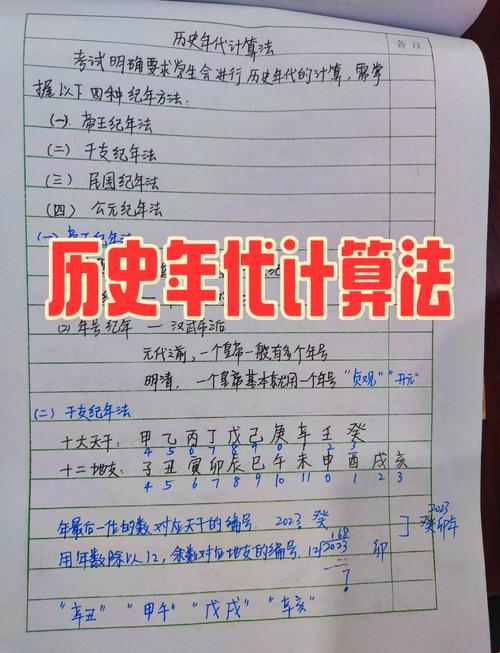 历史年代计算法
备注
考试明确要求学生会进行历史年代的计算,需掌
握以下四种纪年方法:
(一) 帝王纪年法
(二) 干支纪年法
(三) 民国纪年法
(四) 公元纪年法
历史年代计算法
(2) 年号纪年 — 汉武帝
元代之前,一个皇帝一般有多个年号
明清, 一个皇帝基本就用一个年号 "贞观" "开元"
(二) 干支纪年法
十大天干: 甲 乙 丙 丁 戊 己 庚 辛 壬 癸
4 5 6 7 8 9 0 1 2 3
十二地支: 子 丑 寅 卯 辰 巳 午 未 申 酉 戌 亥
4 5 6 7 8 9 10 11 0 1 2 3
年最后一位的数对应天干的编号. 2023 癸
用年数除以12,余数对应地支的编号. 12 2023 168 7 卯
2023
癸卯年
"辛丑" "甲午" "戊戌" "辛亥"